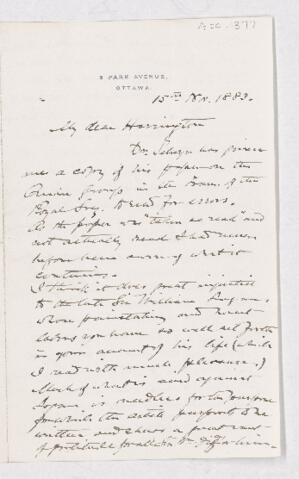 Acc. 377
3 PARK AVENUE,
OTTAWA.
15th Nov. 1883.
My dear Harrington
Dr. Selwyn has given
me a copy of his paper on the
Quebec Group in the Trans. of the
Royal Soc. to read for errors.
As the paper was "taken as read" and
not actually read I had never
before been aware of what it
contains.
I think it does great injustice
to the late Sir William Logan,
whose painstaking and
labors you have so well set forth
in your account of his life (which
I read with much pleasure.)
Much of what is said against
Logan is needless for the purpose
for which the article purports to be
written, and shows a great want
of gratitude for all that